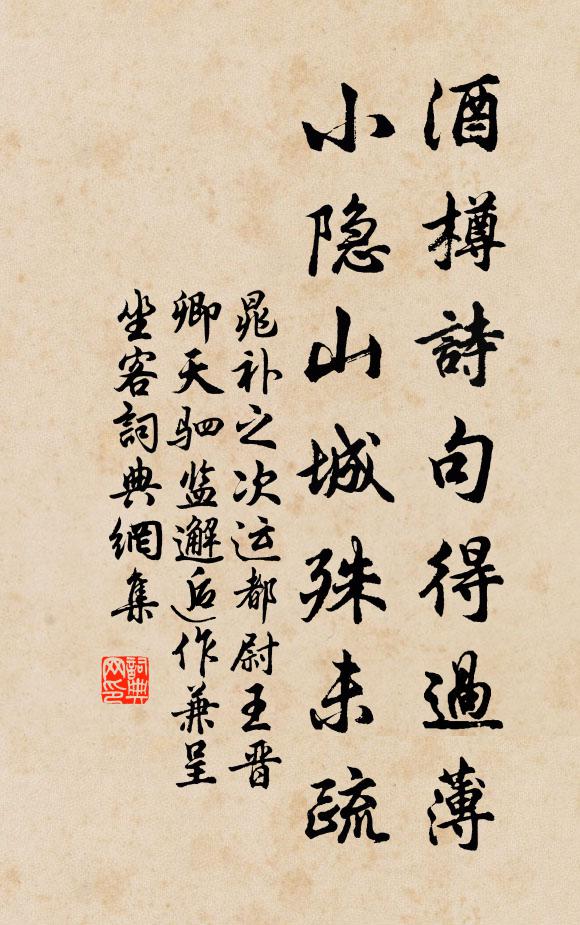 酒樽詩句得過薄
小隐山城殊未疏
晁补之次运都尉王晋
卿天驷监邂逅作兼呈
坐客詞典網集
詞典
网印